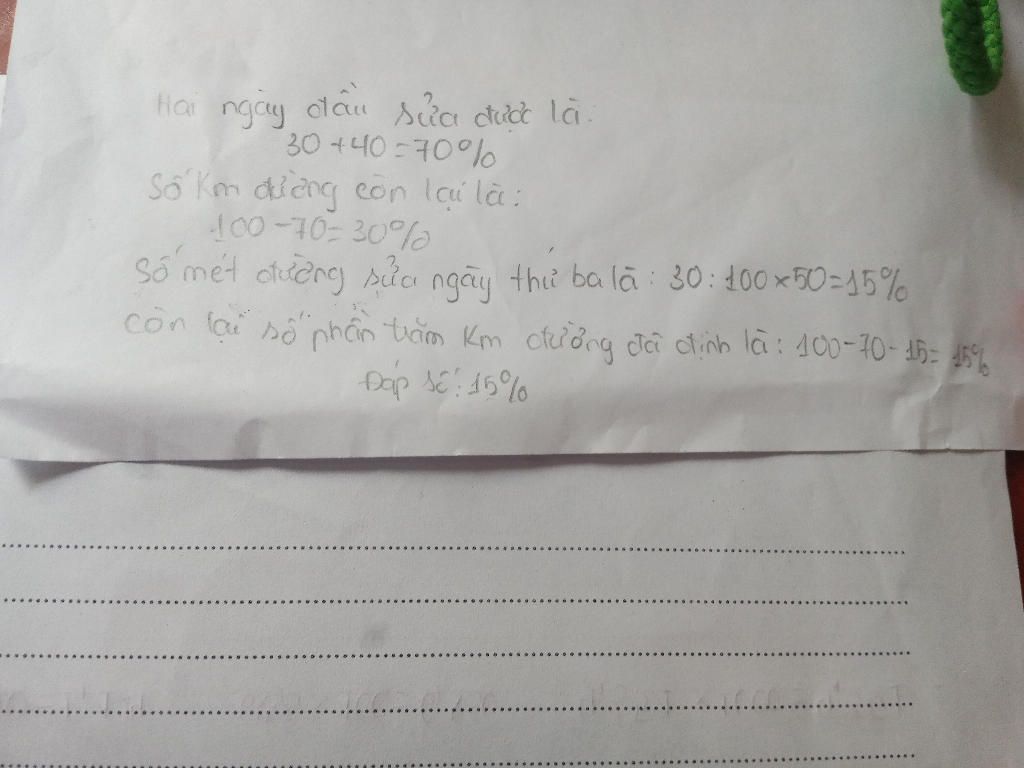 Hai ngày đầu sửa được là:
30+40=70%
Số Km đường còn lại là:
100-70=30%
Số mét đường sửa ngày thứ ba là: 30:100×50=15%
Còn lại số phần trăm Km đường đã định là: 100-70-15=15%
Đáp số:15%